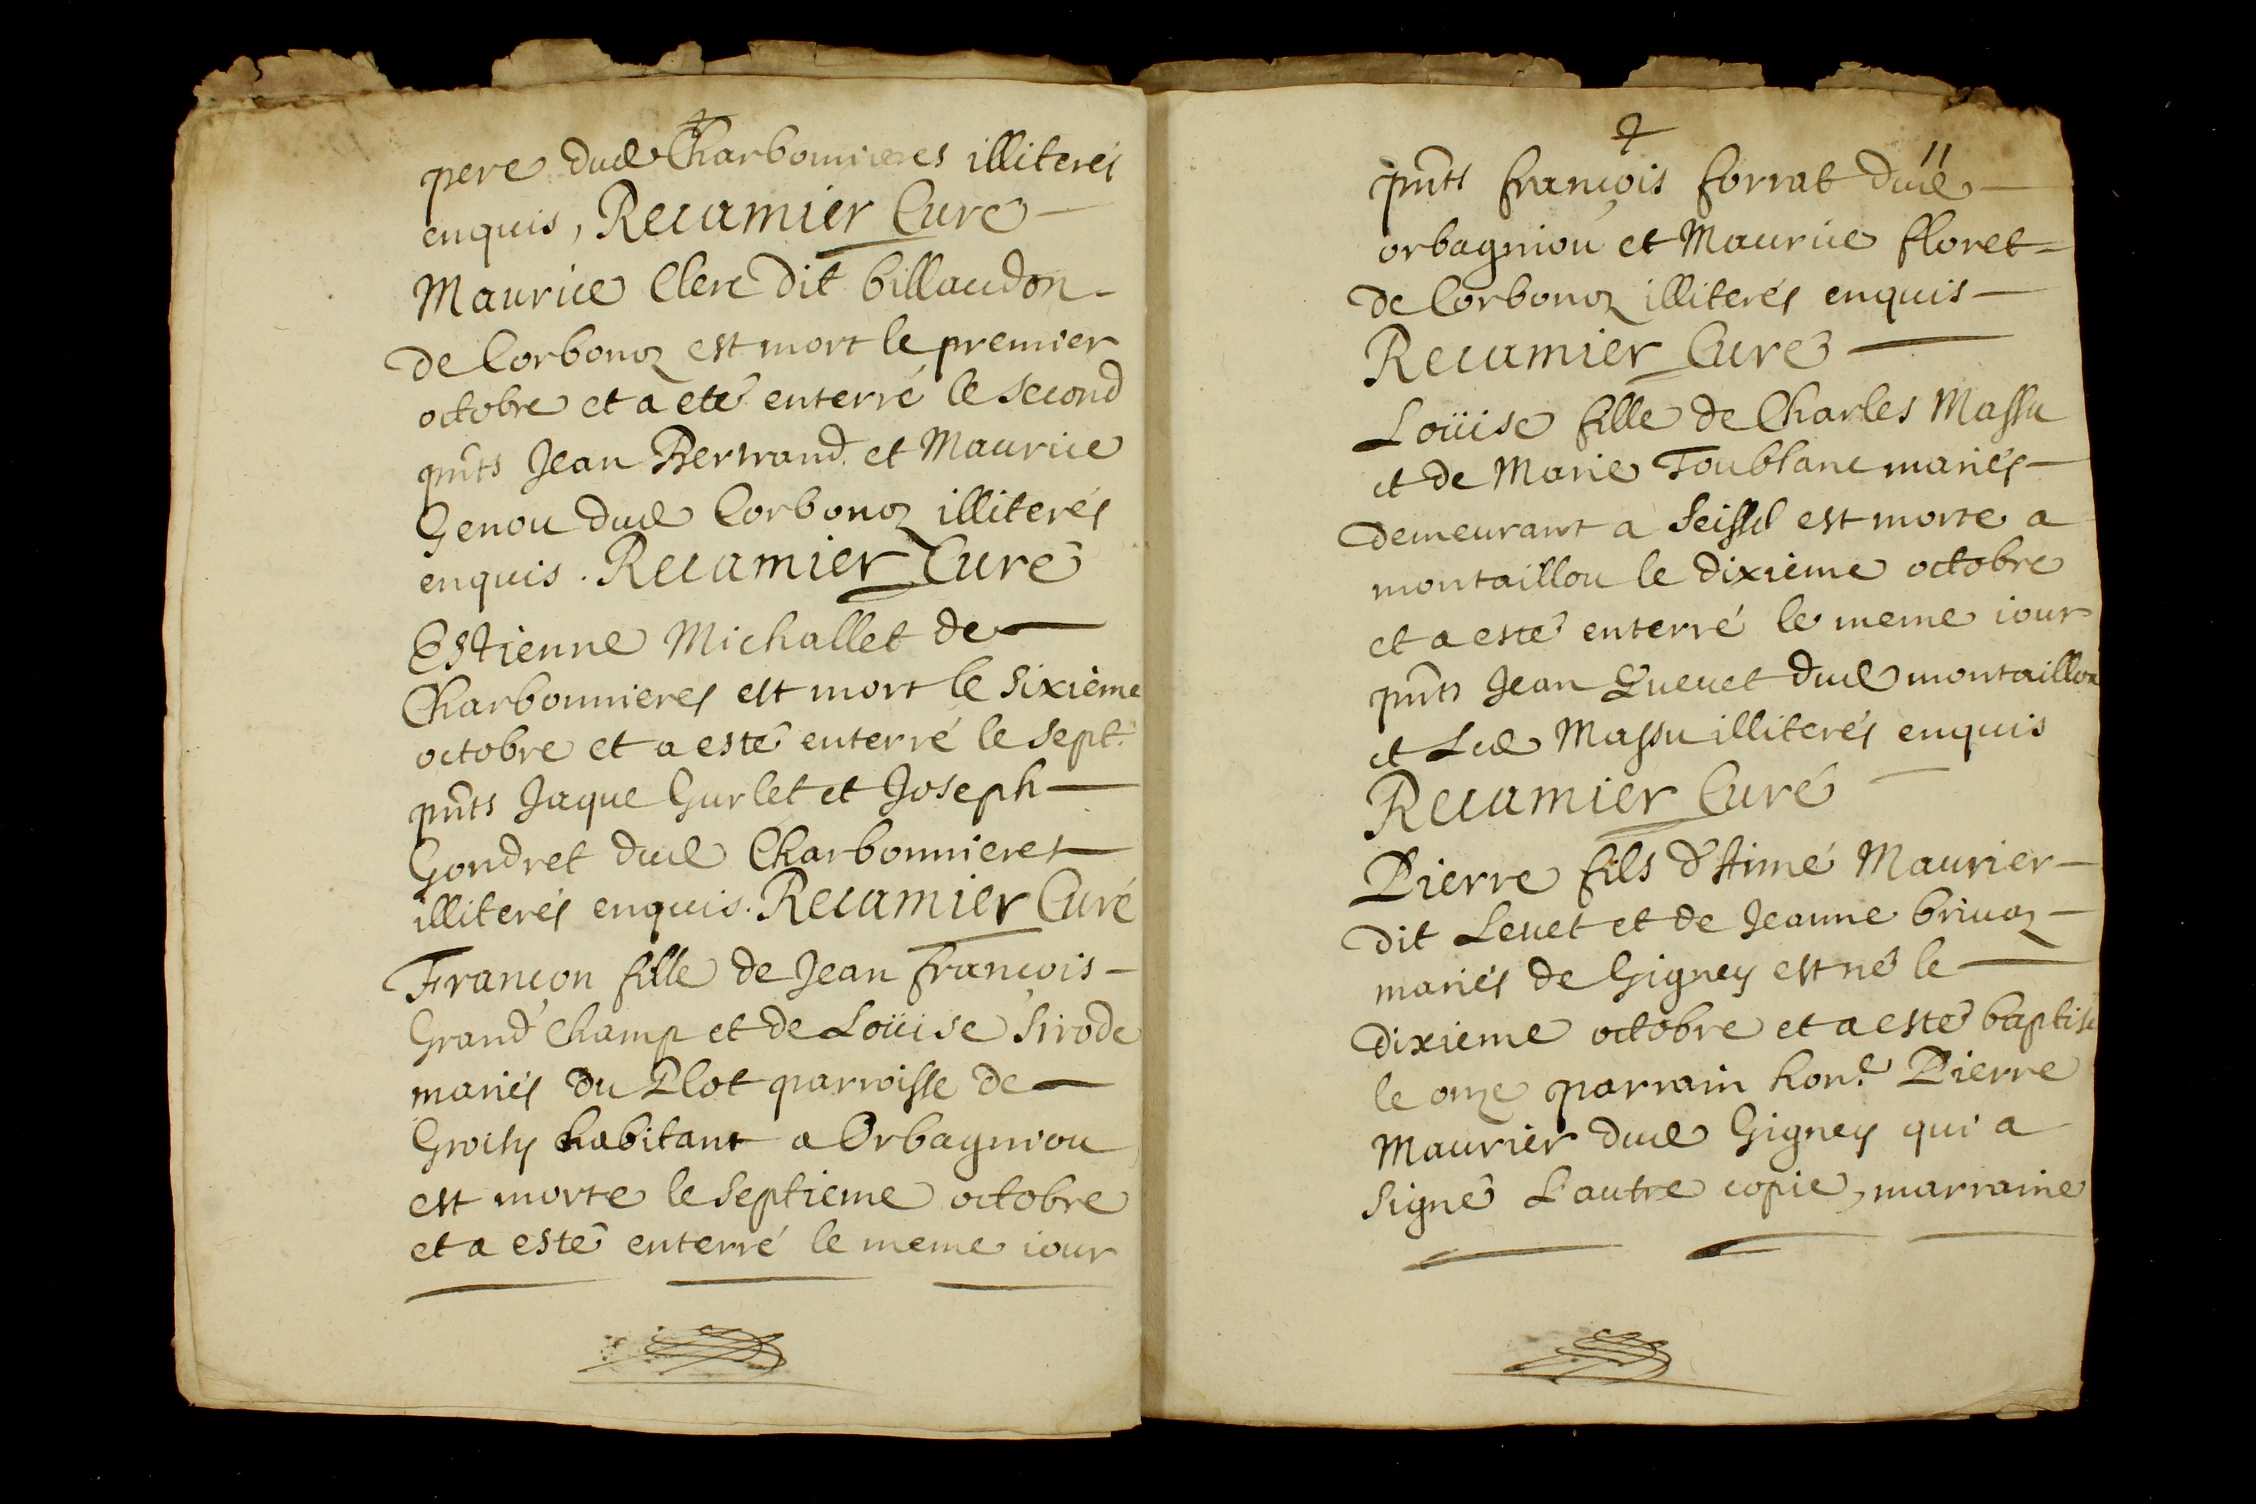 pere dud Charbonnieres illiterés
enquis, Recamier Curé
Maurice Clerc dit billaudon
de Corbonoz est mort le premier
octobre et a eté enterré le second
pnts Jean Bertrand et Maurice
Genou dud Corbonoz illiterés
enquis. Recamier Curé
Estienne Michallet de
Charbonnieres est mort le sixième
octobre et a esté enterré le sept.
pnts Jaque Gurlet et Joseph
Gondret dud Charbonnieres
illiterés enquis. Recamier Curé
Françon fille de Jean françois
Grand Champ et de Loüise Sirode
mariés du Plot parroisse de
Groisy habitant a Orbagniou
est morte le septieme octobre
et a esté enterré le meme iour
11
pnts françois forrat dud
orbagniou et Maurice floret
de Corbonoz illiterés enquis
Recamier Curé
Loüise fille de Charles Massu
et de Marie Toublanc mariés
demeurant a Seissel est morte a
montaillou le dixieme octobre
et a esté enterré le meme iour
pnts Jean Eveuet dud montaillou
et Led Massu illiterés enquis
Recamier Curé
Pierre fils d'Aimé Maurier
dit Leuet et de Jeanne briuaz
mariés de Gigney est né le
dixieme octobre et a esté baptisé
le onze parrain hon.e Pierre
Maurier dud Gigney qui a
signé L'autre copie, marraine